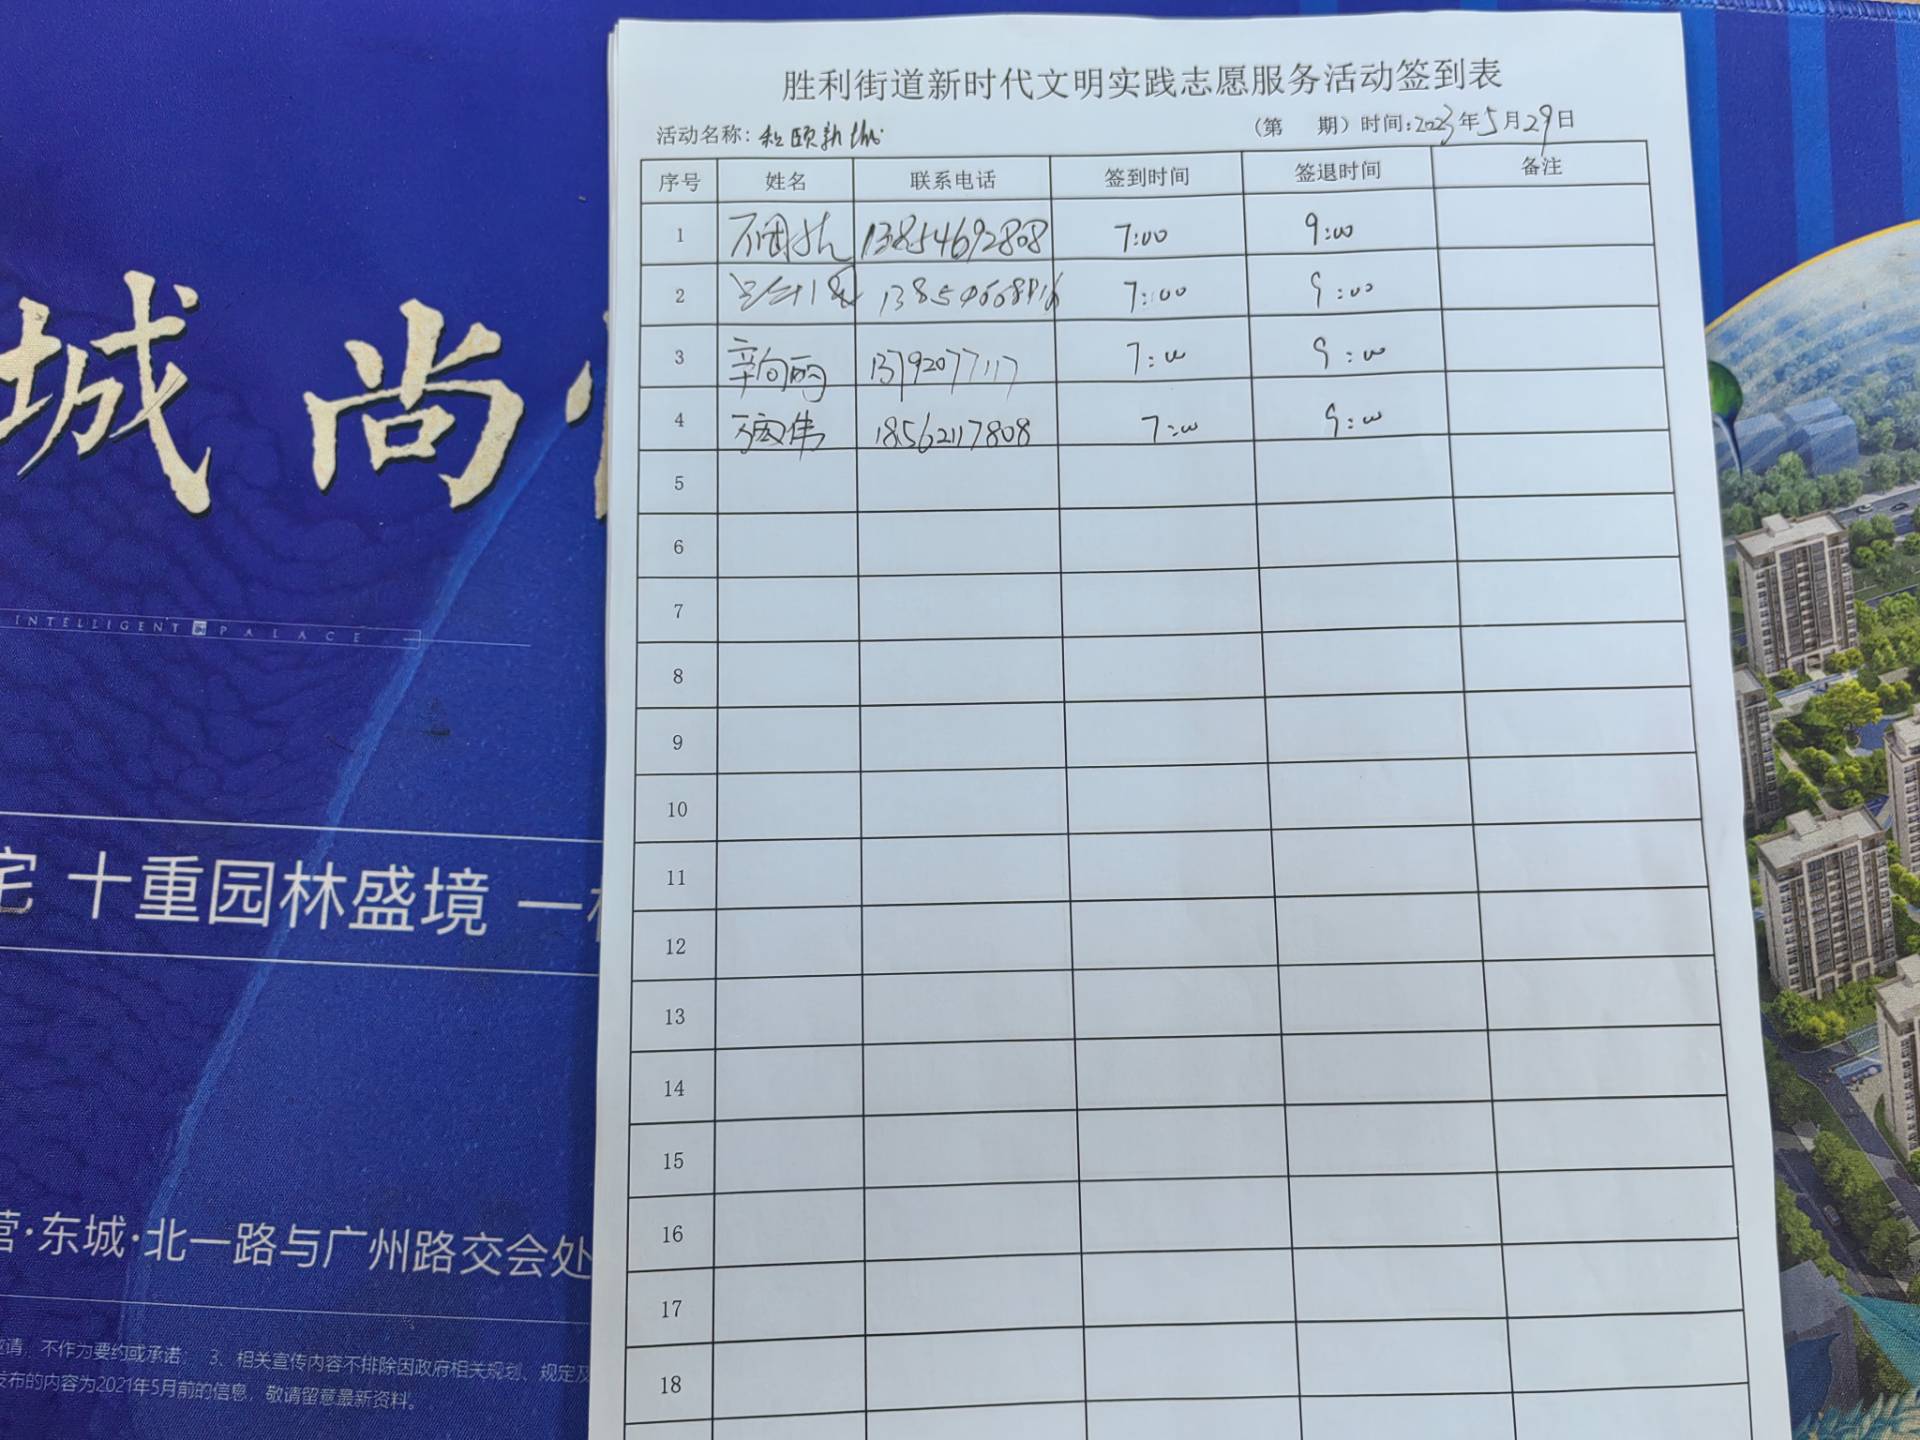 胜利街道新时代文明实践志愿服务活动签到表
活动名称：和颐新城 （第 期）时间：2023年5月29日
序号 姓名 联系电话 签到时间 签退时间 备注
1 13854692808 7:00 9:00
2 7:00 9:00
3 辛向丽 13792077117 7:00 9:00
4 伟 18562117808 7:00 9:00
5
6
7
8
9
10
11
12
13
14
15
16
17
18
城 尚
INTELLIGENT PALACE
宅 十重园林盛境 一
营·东城·北一路与广州路交会处
邀请，不作为要约或承诺； 3、相关宣传内容不排除因政府相关规划、规定及
发布的内容为2021年5月前的信息，敬请留意最新资料。